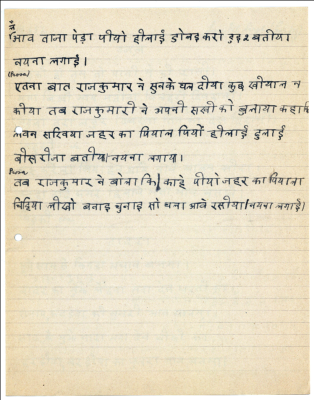 आव ताजा पेड़ा पीयो हीलाई डोलइ करो दुइ २ बतीया
नयना लगाई।
(Prose)
एतना बात राजकुमार ने सुनके चल दीया कुछ खीयाल न
कीया तब राजकुमारी ने अपनी सखी को बुलाया कहा कि
सखिया जहर का पियाल पियों हीलाई डुलाई
बीसरीना बतीया/नयना लगाया।
Prose
तब राजकुमार ने बोला कि/काहे पीयो जहर का पियाला
चिट्ठिया लीखो बनाइ चुनाइ सो धना आवे रसीया/नयना लगाई।